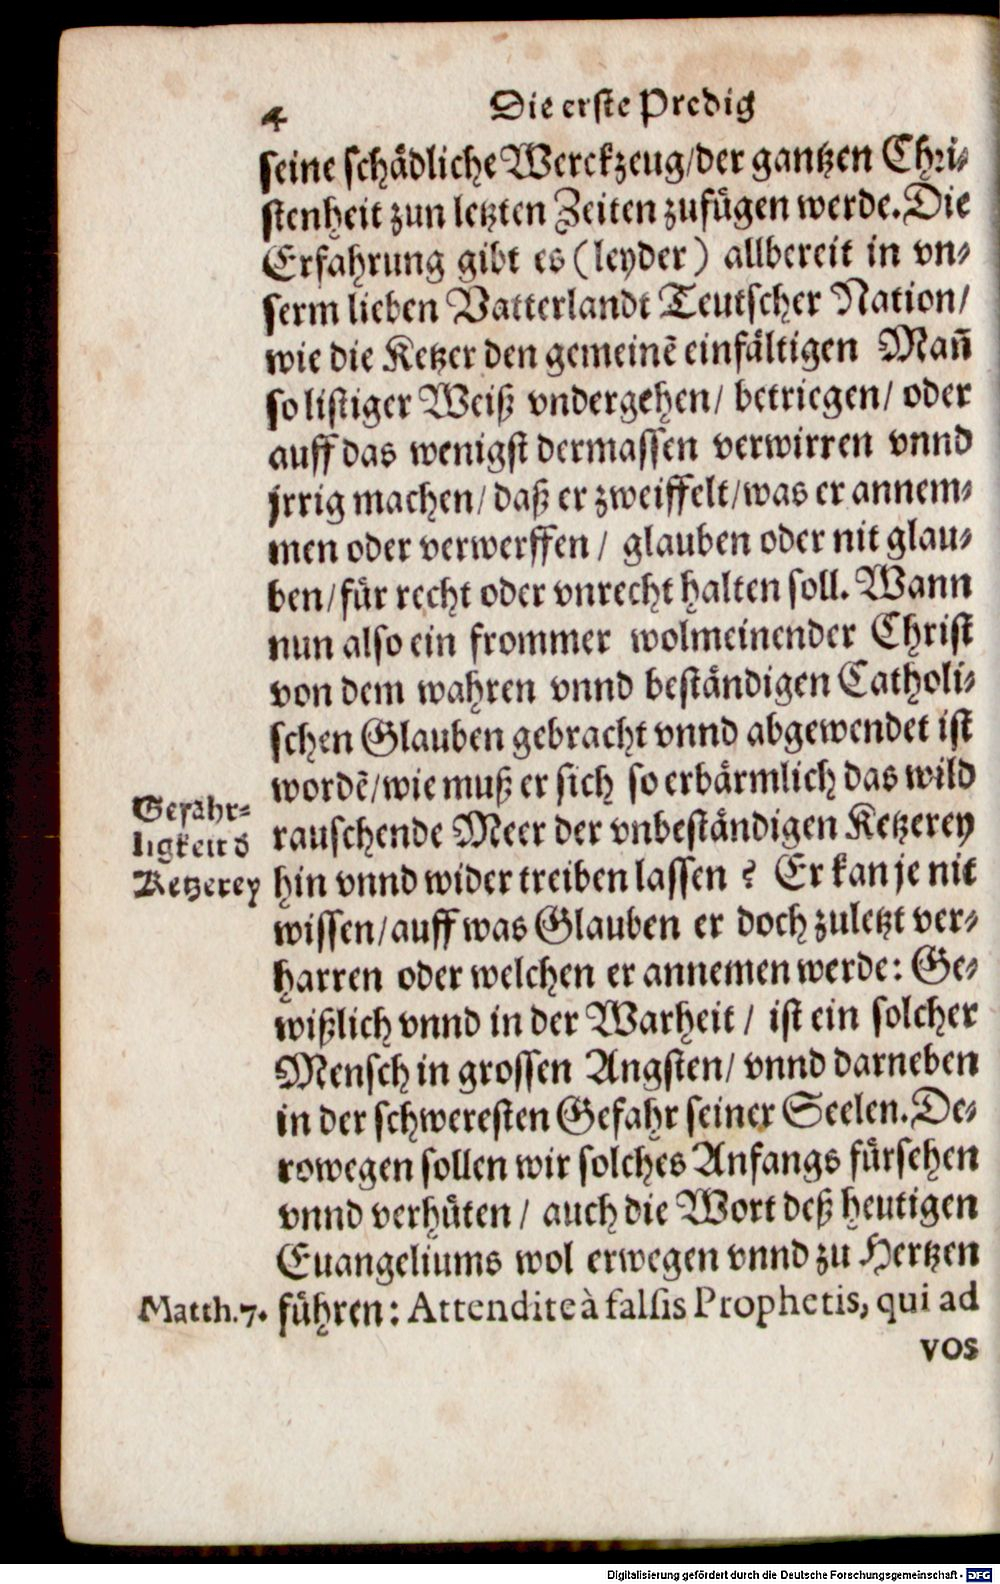 4 Die erste Predig
seine schädliche Werckzeug/der gantzen Chri-
stenheit zun letzten Zeiten zufügen werde. Die
Erfahrung gibt es (leyder) allbereit in vn-
serm lieben Vatterlandt Teutscher Nation/
wie die Ketzer den gemeinē einfältigen Mañ
so listiger Weiß vndergehen/ betriegen/ oder
auff das wenigst dermassen verwirren vnnd
jrrig machen/ daß er zweiffelt/was er annem-
men oder verwerffen/ glauben oder nit glau-
ben/für recht oder vnrecht halten soll. Wann
nun also ein frommer wolmeinender Christ
von dem wahren vnnd beständigen Catholi-
schen Glauben gebracht vnnd abgewendet ist
wordē/wie muß er sich so erbärmlich das wild
rauschende Meer der vnbeständigen Ketzerey
hin vnnd wider treiben lassen? Er kan je nit
wissen/auff was Glauben er doch zuletzt ver-
harren oder welchen er annemen werde: Ge-
wißlich vnnd in der Warheit/ ist ein solcher
Mensch in grossen Angsten/ vnnd darneben
in der schweresten Gefahr seiner Seelen. De-
rowegen sollen wir solches Anfangs fürsehen
vnnd verhüten/ auch die Wort deß heutigen
Euangeliums wol erwegen vnnd zu Hertzen
führen: Attendite à falsis Prophetis, qui ad
vos
Gefähr-
ligkeit d
Ketzerey
Matth.7.
Digitalisierung gefördert durch die Deutsche Forschungsgemeinschaft - DFG